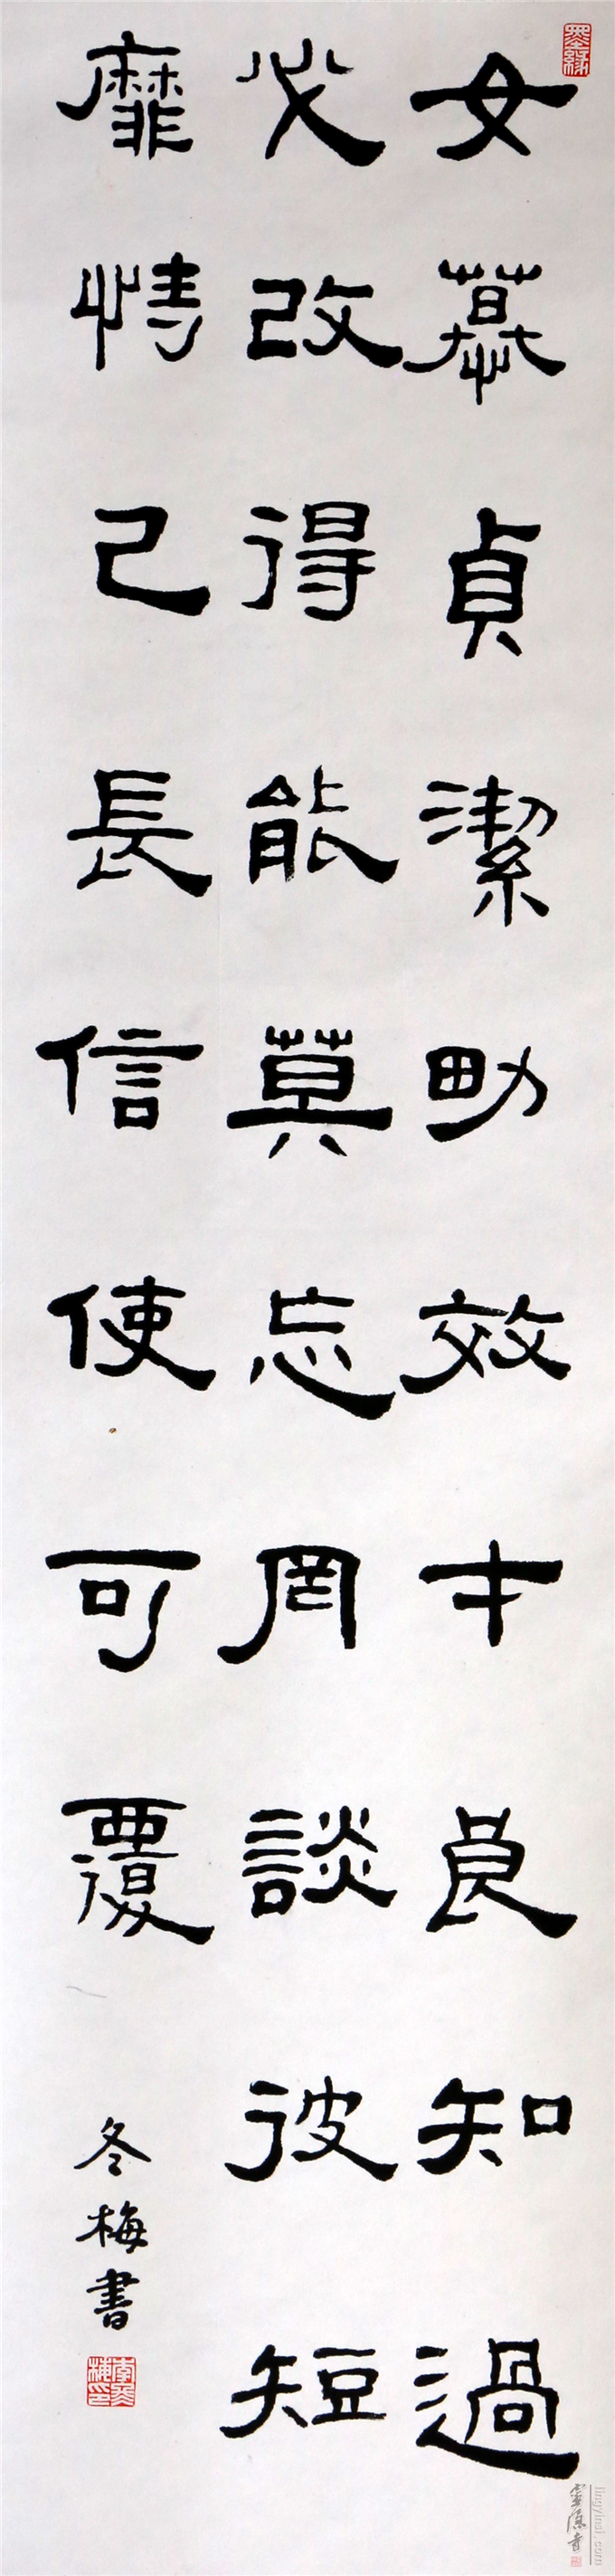 墨緣
女慕貞潔男效才良知過
必改得能莫忘罔談彼短
靡恃己長信使可覆
冬梅書